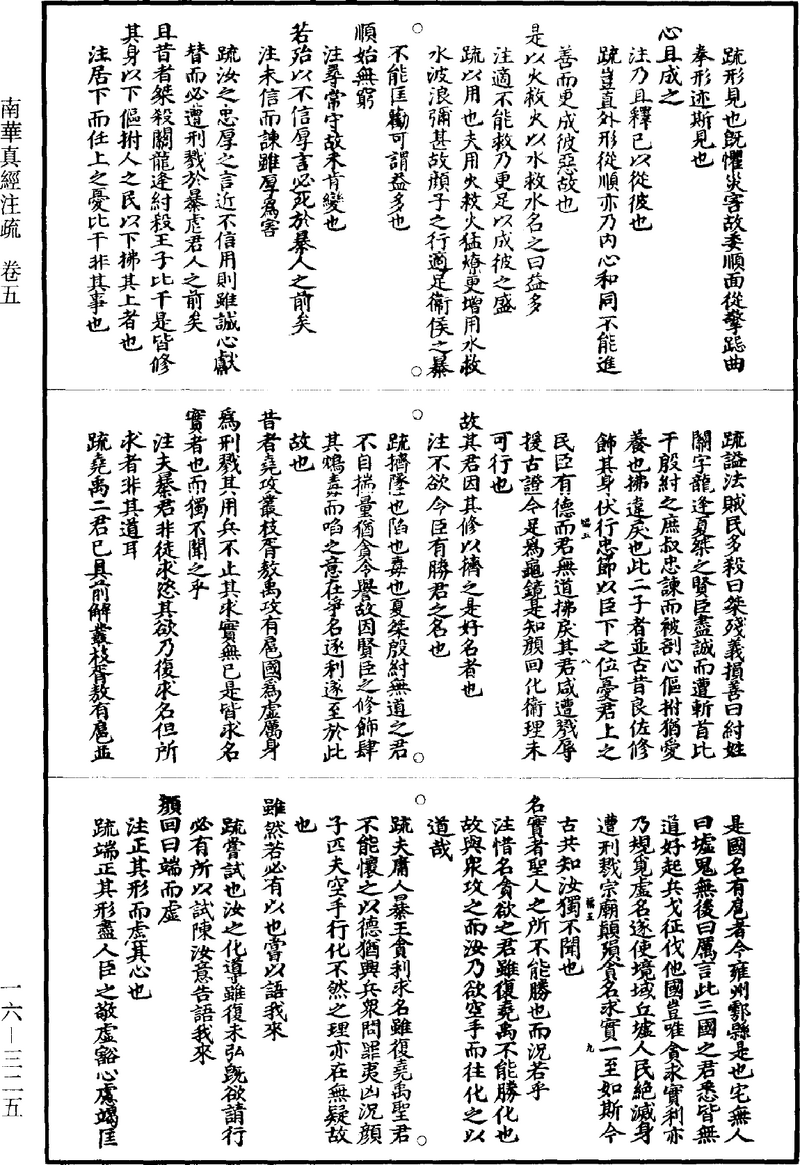 南華真經注疏　卷五
疏形見也既懼災害故委順面從擎跽曲
拳形迹斯見也
心且成之
注乃且釋己以從彼也
疏豈直外形從順亦乃內心和同不能進
善而更成彼惡故也
是以火救火以水救水名之曰益多
注適不能救乃更足以成彼之盛
疏以用也夫用火救火猛燎更增用水救
水波浪彌甚故顏子之行適足衞侯之暴
不能匡勸可謂益多也
順始無窮
注尋常守故未肯變也
若殆以不信厚言必死於暴人之前矣
注未信而諫雖厚為害
疏汝之忠厚之言近不信用則雖誠心獻
替而必遭刑戮於暴虐君人之前矣
且昔者桀殺關龍逢紂殺王子比干是皆修
其身以下傴拊人之民以下拂其上者也
注居下而任上之憂比干非其事也
疏謚法賊民多殺曰桀殘義損善曰紂姓
關字龍逢夏桀之賢臣盡誠而遭斬首比
干殷紂之庶叔忠諫而被剖心傴拊猶愛
養也拂違戾也此二子者並古昔良佐修
飾其身伏行忠節以臣下之位憂君上之
民臣有德而君無道拂戾其君咸遭戮辱
援古證今足為龜鏡是知顏回化衞理未
可行也
故其君因其修以擠之是好名者也
注不欲令臣有勝君之名也
疏擠墜也陷也毒也夏桀殷紂無道之君
不自揣量猶貪令譽故因賢臣之修飾肆
其鴆毒而陷之意在爭名逐利遂至於此
故也
昔者堯攻叢枝胥敖禹攻有扈國為虛厲身
為刑戮其用兵不止其求實無已是皆求名
實者也而獨不聞之乎
注夫暴君非徒求恣其欲乃復求名但所
求者非其道耳
疏堯禹二君已具前解叢枝胥敖有扈並
是國名有扈者今雍州鄠縣是也宅無人
曰墟鬼無後曰厲言此三國之君悉皆無
道好起兵戈征伐他國豈唯貪求實利亦
乃規覓虛名遂使境域丘墟人民絕滅身
遭刑戮宗廟顛殞貪名求實一至如斯今
古共知汝獨不聞也
名實者聖人之所不能勝也而況若乎
注惜名貪欲之君雖復堯禹不能勝化也
故與衆攻之而汝乃欲空手而往化之以
道哉
疏夫庸人暴王貪利求名雖復堯禹聖君
不能懷之以德猶興兵衆問罪夷凶況顏
子匹夫空手行化不然之理亦在無疑故
也
雖然若必有以也嘗以語我來
疏嘗試也汝之化導雖復未弘既欲請行
必有所以試陳汝意告語我來
顏回曰端而虛
注正其形而虛其心也
疏端正其形盡人臣之敬虛豁心慮竭匡
一六—三二五